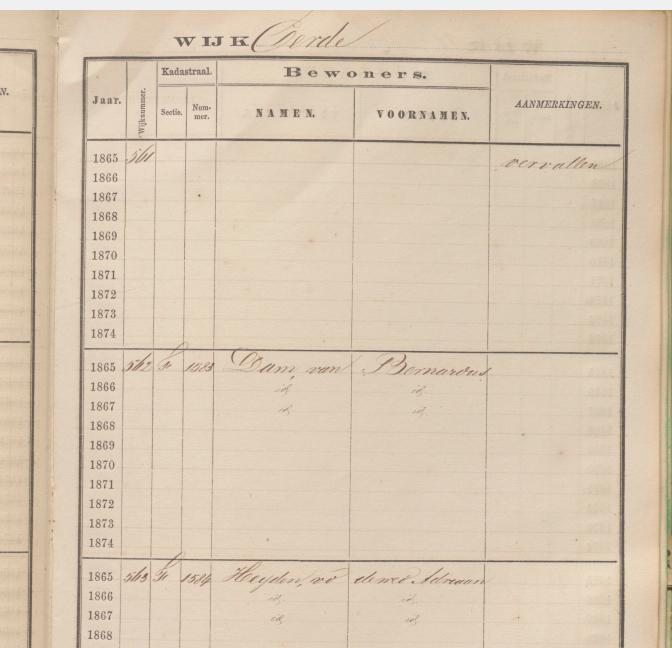 N.
WIJK Eerde
Jaar. Wijknummer. Kadastraal. Bewoners. AANMERKINGEN.
Sectie. Nummer. NAMEN. VOORNAMEN.
1865 561 vervallen
1866
1867
1868
1869
1870
1871
1872
1873
1874
1865 562 F 1583 Dam, van Bernardus
1866 id, id,
1867 id, id,
1868
1869
1870
1871
1872
1873
1874
1865 563 F 1584 Heyden, vd de wed Adriaan
1866 id, id,
1867 id, id,
1868